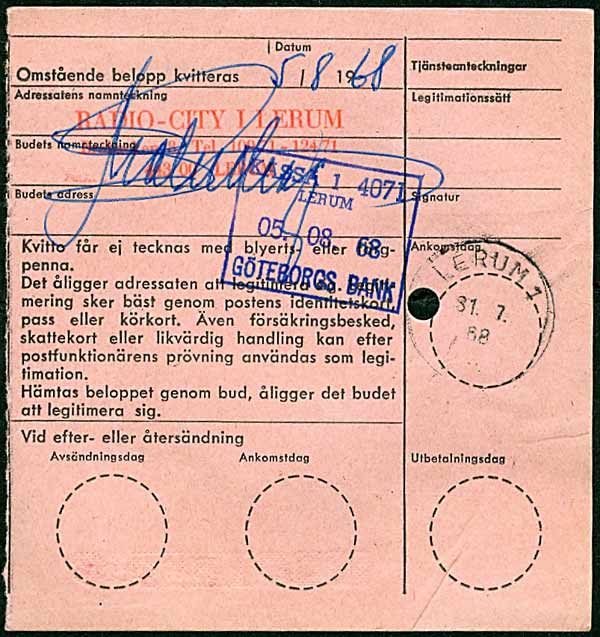 Datum
Omstående belopp kvitteras 5/8 1968
Tjänsteanteckningar
Adressatens namnteckning
Legitimationssätt
RADIO-CITY I LERUM
Budets namnteckning
Tel.
- 124/71
KASSA 1 4071
LERUM
Budets adress
Signatur
05. 08. 68
GÖTEBORGS BANK
Kvitto får ej tecknas med blyerts- eller färg-
penna.
Ankomstdag
LERUM 1
31. 7.
68
Det åligger adressaten att legitimera sig. Legiti-
mering sker bäst genom postens identitetskort,
pass eller körkort. Även försäkringsbesked,
skattekort eller likvärdig handling kan efter
postfunktionärens prövning användas som legi-
timation.
Hämtas beloppet genom bud, åligger det budet
att legitimera sig.
Vid efter- eller återsändning
Avsändningsdag
Ankomstdag
Utbetalningsdag